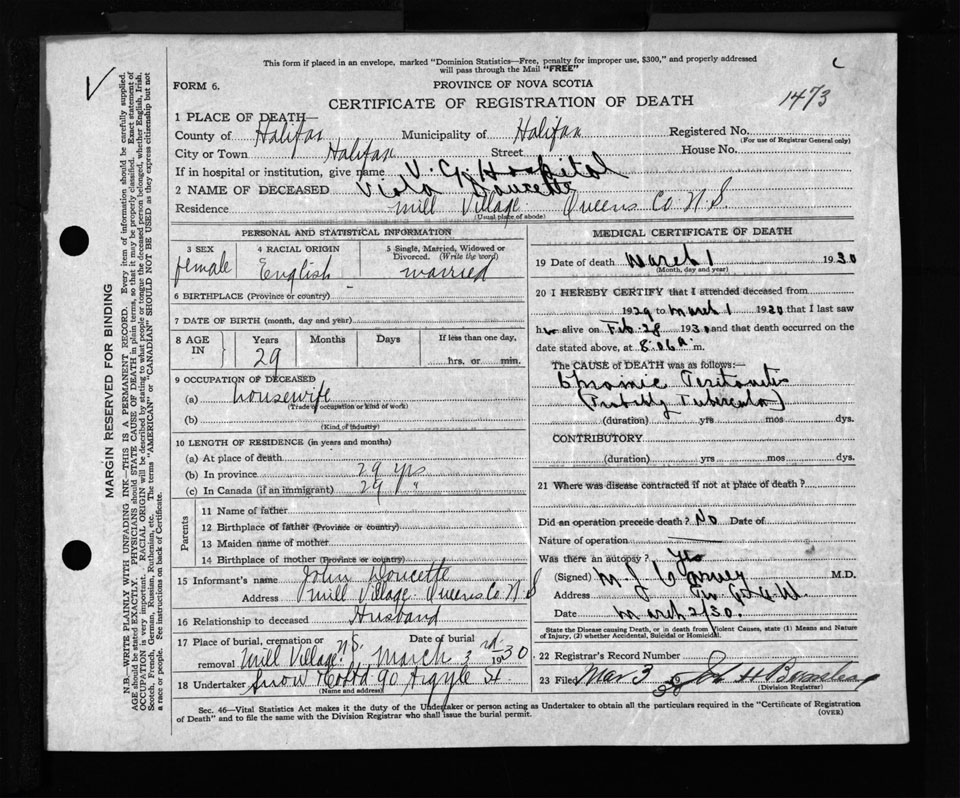 This form if placed in an envelope, marked "Dominion Statistics—Free, penalty for improper use, $300," and properly addressed
will pass through the Mail "FREE"
FORM 6.
PROVINCE OF NOVA SCOTIA
CERTIFICATE OF REGISTRATION OF DEATH
1473
1 PLACE OF DEATH—
County of Halifax Municipality of Halifax Registered No. (For use of Registrar General only)
City or Town Halifax Street House No.
If in hospital or institution, give name V. G. Hospital
2 NAME OF DECEASED Viola Doucette
Residence Mill Village Queens Co. N.S.
(Usual place of abode)
PERSONAL AND STATISTICAL INFORMATION
3 SEX female
4 RACIAL ORIGIN English
5 Single, Married, Widowed or Divorced. (Write the word) married
6 BIRTHPLACE (Province or country)
7 DATE OF BIRTH (month, day and year)
8 AGE IN Years 29 Months Days If less than one day, hrs. or min.
9 OCCUPATION OF DECEASED
(a) housewife
(Trade, occupation or kind of work)
(b)
(Kind of industry)
10 LENGTH OF RESIDENCE (in years and months)
(a) At place of death
(b) In province 29 yrs
(c) In Canada (if an immigrant) 29 "
Parents
11 Name of father
12 Birthplace of father (Province or country)
13 Maiden name of mother
14 Birthplace of mother (Province or country)
15 Informant's name John Doucette
Address Mill Village Queens Co. N S
16 Relationship to deceased Husband
17 Place of burial, cremation or removal Mill Village N.S. Date of burial March 3rd 1930
18 Undertaker Snow & Co Ltd 90 Argyle St
(Name and address)
MEDICAL CERTIFICATE OF DEATH
19 Date of death March 1 1930
(Month, day and year)
20 I HEREBY CERTIFY that I attended deceased from
1929 to March 1 1930 that I last saw
her alive on Feb. 28 1930 and that death occurred on
date stated above, at 8.06 a. m.
The CAUSE OF DEATH was as follows:—
Chronic Peritonitis
(Probably Tubercular)
(duration) yrs mos dys.
CONTRIBUTORY
(duration) yrs mos dys.
21 Where was disease contracted if not at place of death?
Did an operation precede death? No Date of
Nature of operation
Was there an autopsy? Yes
(Signed) M. J. M.D.
Address
Date March 2/30.
State the Disease causing Death, or in death from Violent Causes, state (1) Means and Nature
of Injury, (2) whether Accidental, Suicidal or Homicidal.
22 Registrar's Record Number
23 Filed Mar 3 30
(Division Registrar)
Sec. 46—Vital Statistics Act makes it the duty of the Undertaker or person acting as Undertaker to obtain all the particulars required in the "Certificate of Registration
of Death" and to file the same with the Division Registrar who shall issue the burial permit.
(OVER)
MARGIN RESERVED FOR BINDING
N.B.—WRITE PLAINLY WITH UNFADING INK—THIS IS A PERMANENT RECORD. Every item of information should be carefully supplied.
AGE should be stated EXACTLY. PHYSICIANS should STATE CAUSE OF DEATH in plain terms, so that it may be properly classified. Exact statement of
OCCUPATION is very important. RACIAL ORIGIN will be described by stating to what people or tongue the deceased person belonged, whether English, Irish,
Scotch, French, German, Russian, Ruthenian, etc. The terms "AMERICAN" or "CANADIAN" SHOULD NOT BE USED as they express citizenship but not
a race or people. See instructions on back of Certificate.